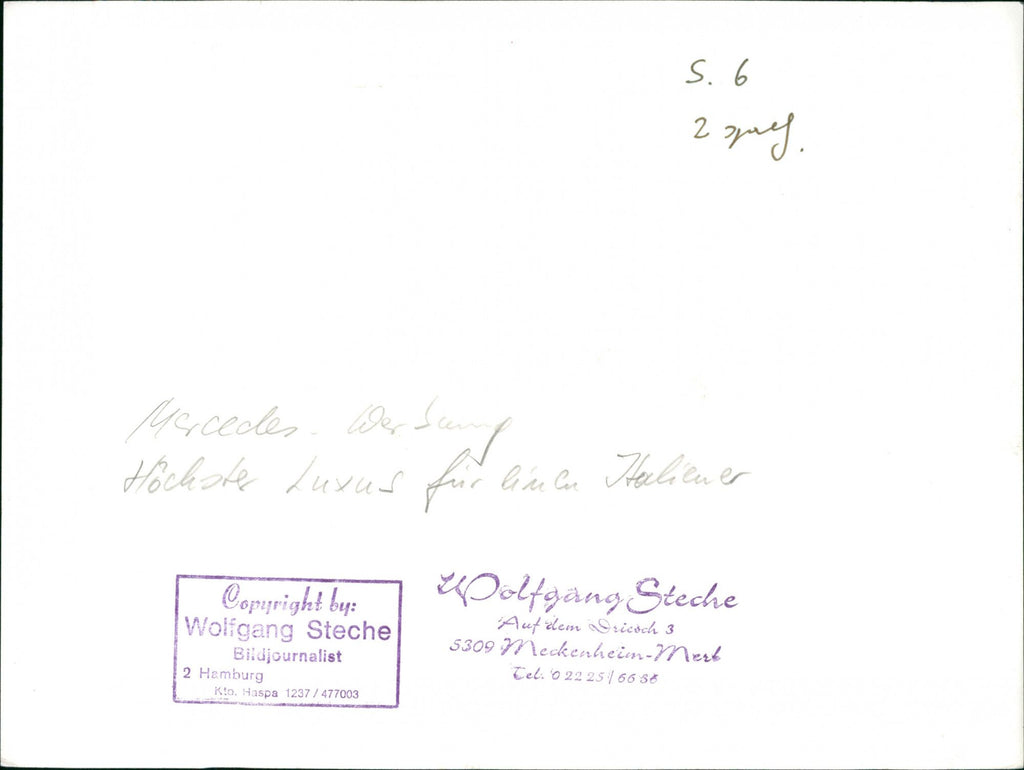 S. 6
2 spalt.
Mercedes - Werbung
Höchster Luxus für einen Italiener
Copyright by:
Wolfgang Steche
Bildjournalist
2 Hamburg
Kto. Haspa 1237 / 477003
Wolfgang Steche
Auf dem Driesch 3
5309 Meckenheim-Merl
Tel. 0 22 25 / 66 86